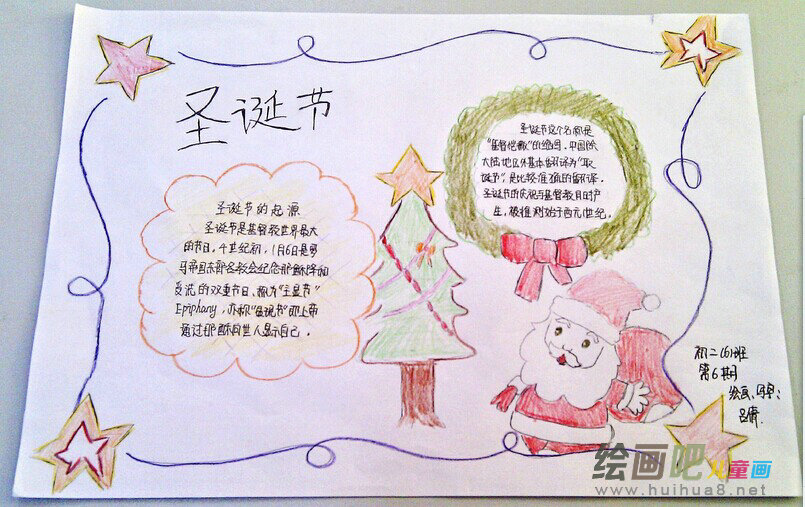 圣诞节
圣诞节的起源
圣诞节是基督教世界最大
的节日。4世纪初,1月6日是罗
马帝国东部各教会纪念耶稣降和
受洗的双重节日、称为"主显节"
Epiphany,亦称"显现节"即上帝
通过耶稣向世人显示自己。
圣诞节这个名称是
"基督弥撒"的缩写。中国除
大陆地区外基本翻译为"耶
诞节",是比较准确的翻译。
圣诞节的庆祝与基督教同时产
生,被推测始于西元1世纪。
初二(6)班
第6期
绘画、
绘画吧儿童画
www.huihua8.net